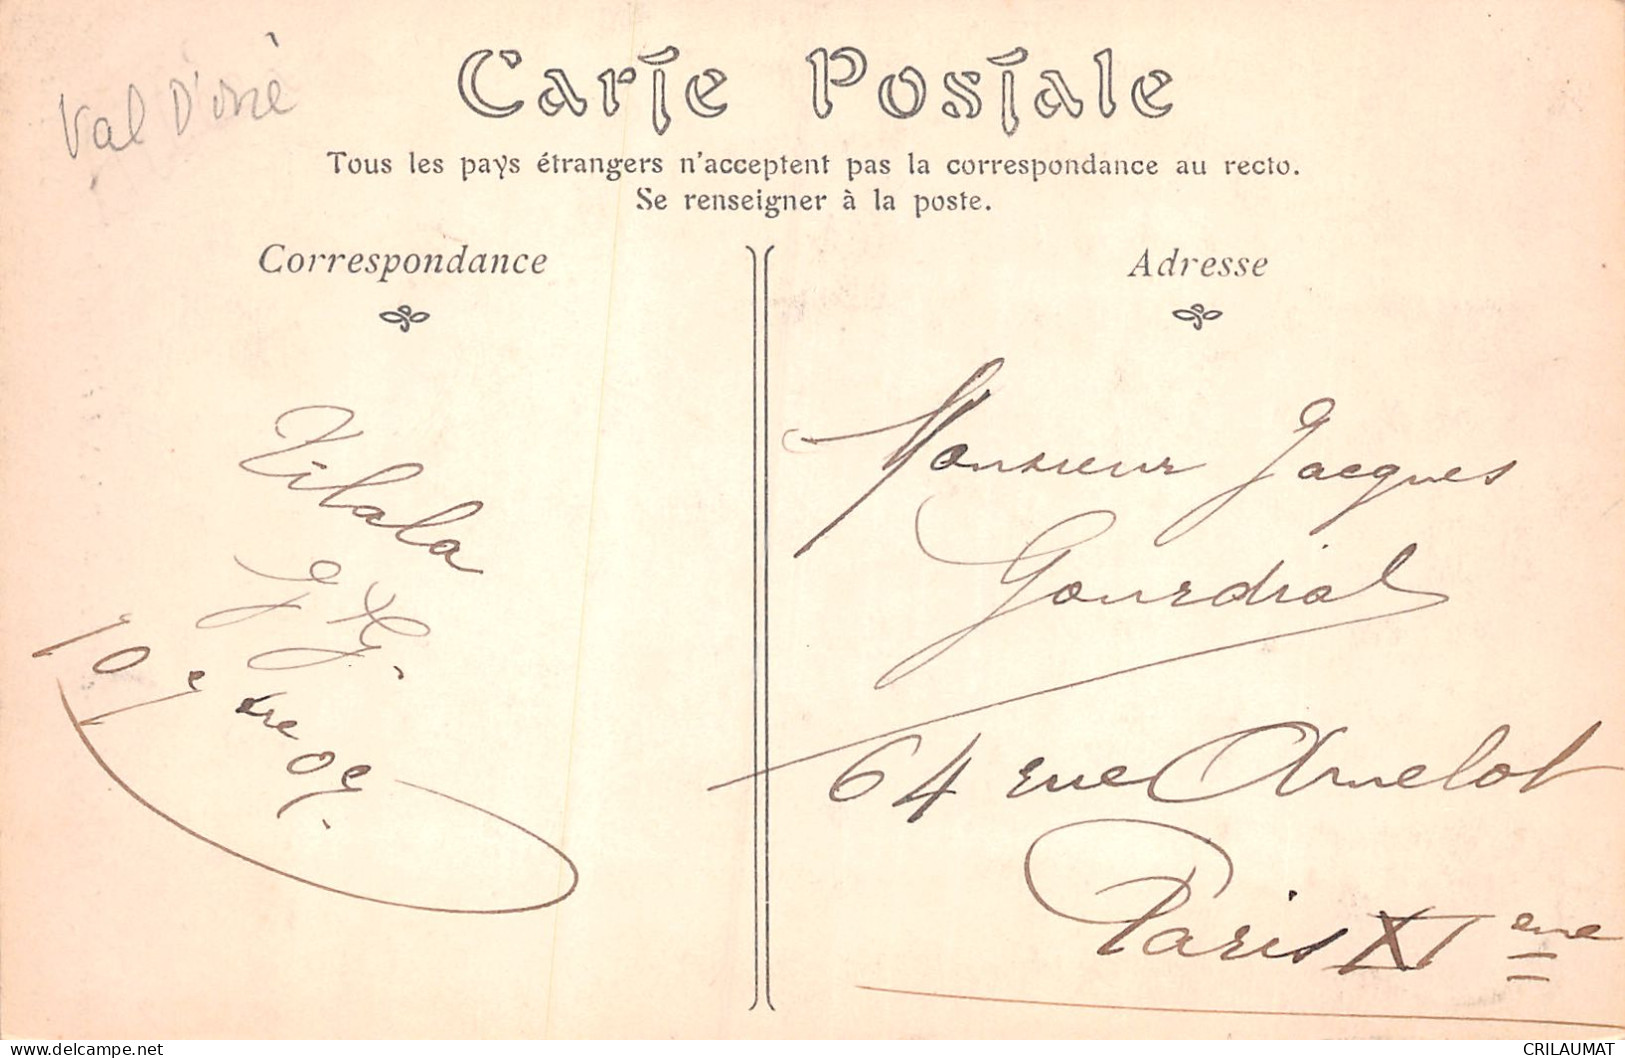 Val D'Isè
Carte Postale
Tous les pays étrangers n'acceptent pas la correspondance au recto.
Se renseigner à la poste.
Correspondance
Adresse
Monsieur Jacques
Gourdial
64 rue Amelot
Paris XIeme
10 7bre 09.
CRILAUMAT